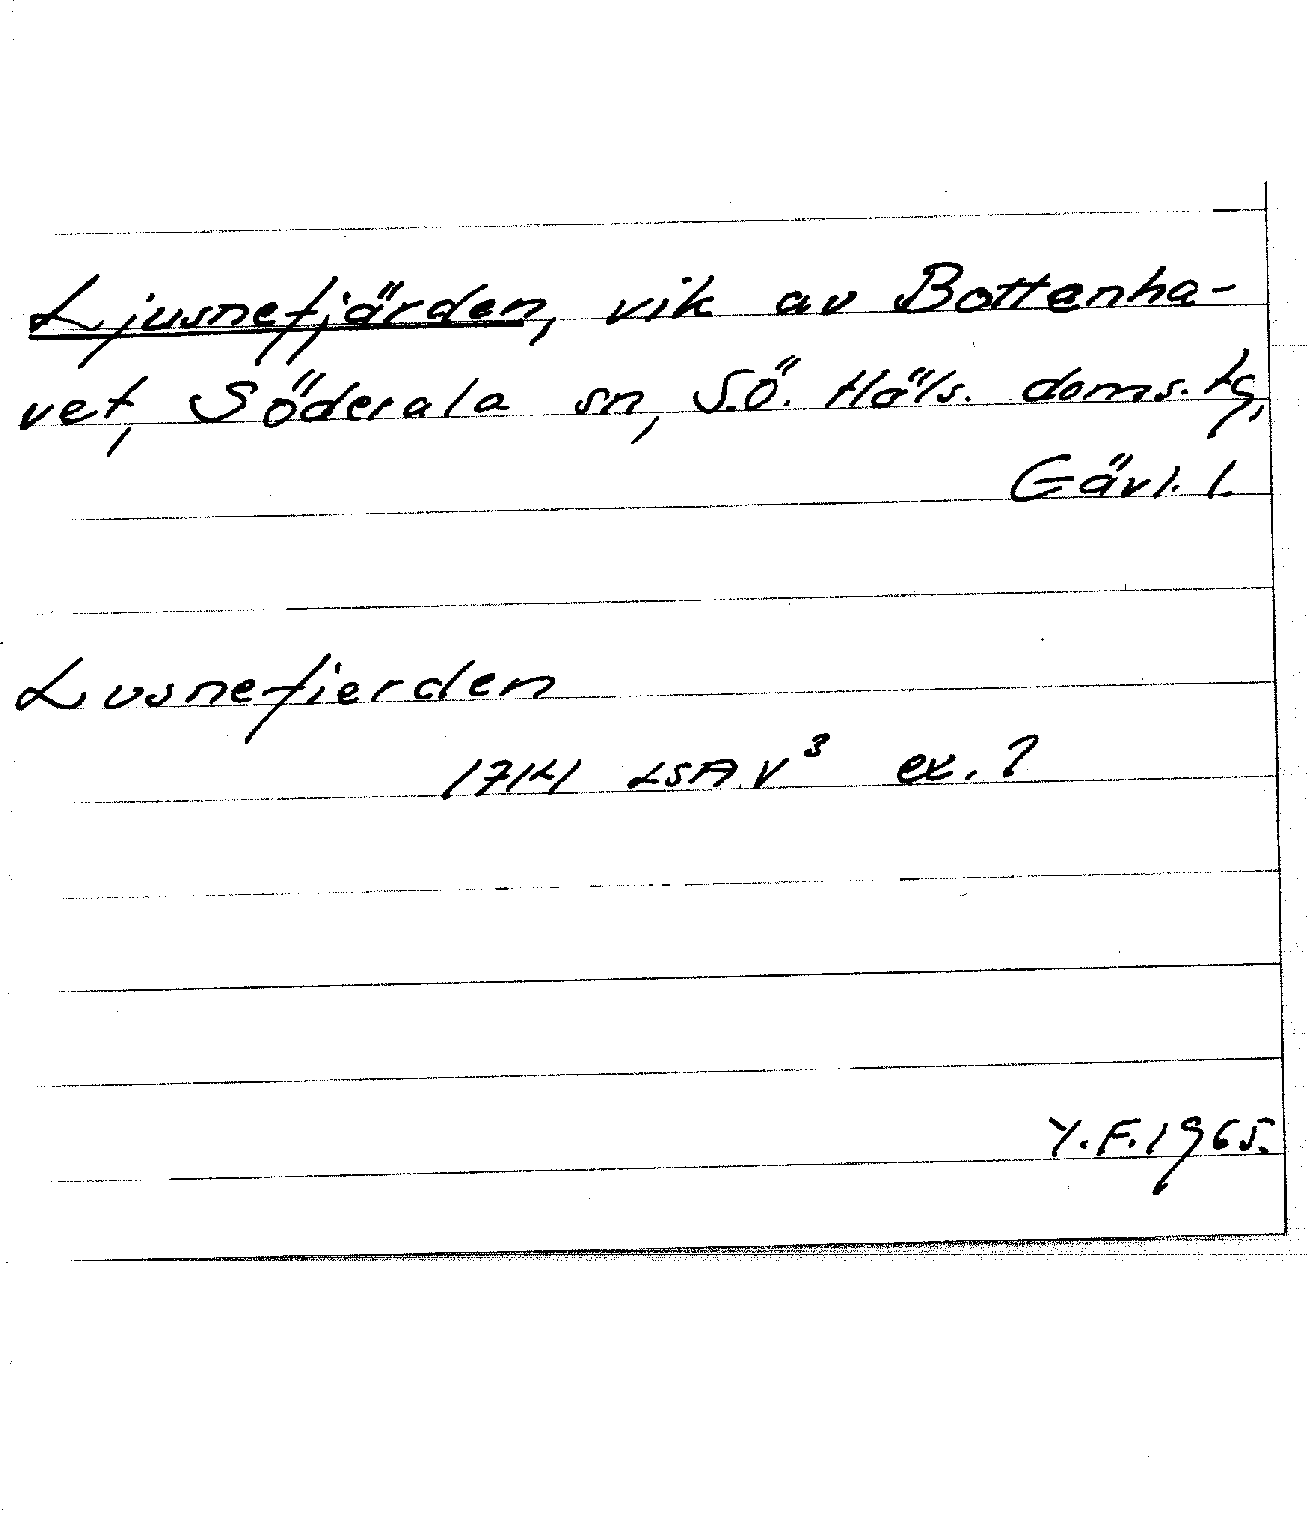 Ljusnefjärden, vik av Bottenha-
vet, Söderala sn, S.Ö. Häls. doms. tg,
Gävl. l.
Lusnefierden
1714 LSA V³ ex. 2
Y.F. 1965.